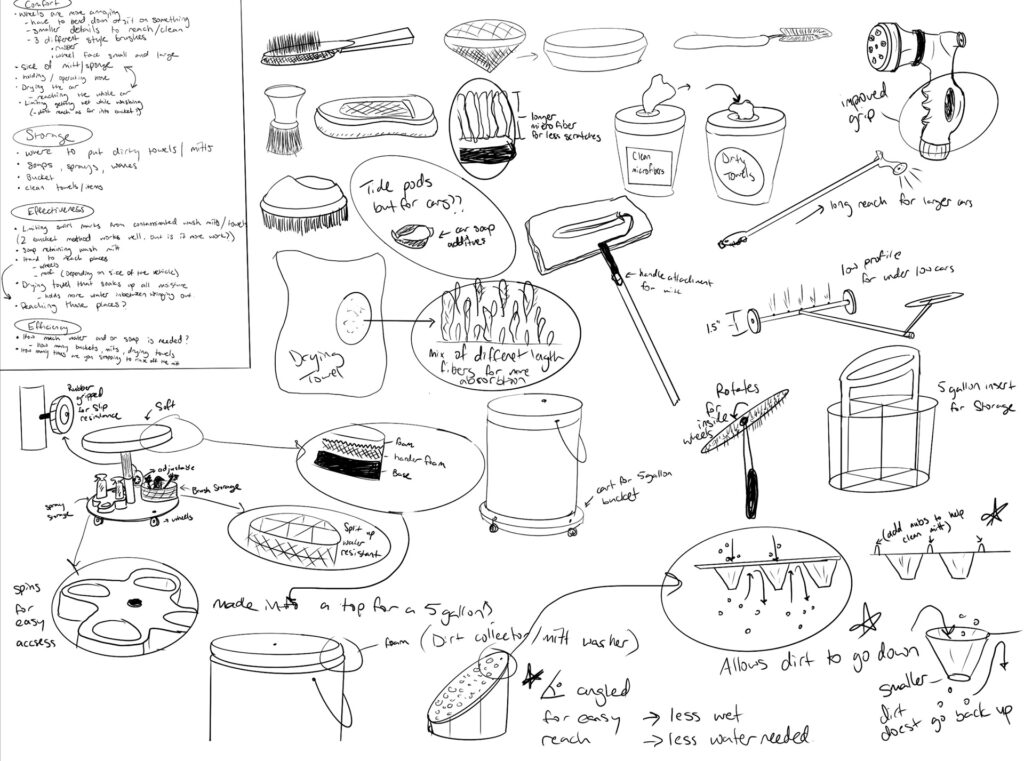 Comfort
• wheels are more annoying
- have to bend down or sit on something
- smaller details to reach/clean
- 3 different style brushes
• rubber
• wheel face small and large
• size of mitt/sponge
• holding / operating hose
• Drying the car
- reaching the whole car
• Limiting getting wet while washing
Storage
• where to put dirty towels/mitts
• Soaps, sprays, waxes
• Bucket
• clean towels/items
Effectiveness
• Limiting swirl marks from contaminated wash mitts/towels
(2 bucket method works well, but is it more work?)
• Soap retaining wash mitt
• Hard to reach places
- wheels
- roof (Depending on size of the vehicle)
• Drying towel that soaks up all moisture
- holds more water inbetween wringing out
• Reaching those places?
Efficiency
• How much water and or soap is needed?
- how many buckets, mitts, drying towels
• How many times are you stopping to rinse off the mitt
longer
microfiber
for less scratches
Clean
microfibers
Dirty
Towels
improved
grip
Tide pods
but for cars??
car soap
additives
handle attachment
for mitt
long reach for larger cars
low profile
for under low cars
1.5"
Drying
Towel
mix of different length
fibers for more
absorbtion
Rotates
for
inside
wheels
5 gallon insert
for Storage
Rubber
gripped
for slip
resistance
Soft
adjustable
Brush Storage
spray
storage
wheels
foam
harder foam
Base
cart for 5 gallon
bucket
Split up
water
resistant
spins
for
easy
accsess
made into a top for a 5 gallon?
foam (Dirt collector/mitt washer)
angled
for easy
reach
→ less wet
→ less water needed
(add nubs to help
clean mitt)
Allows dirt to go down
smaller
dirt
doesnt go back up